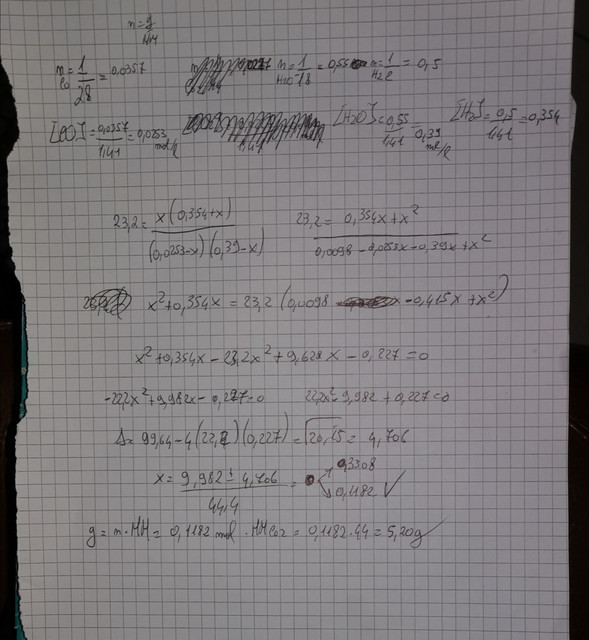 n = g/MM
n CO = 1/28 = 0,0357 n H2O = 1/18 = 0,55 n H2 = 1/2 = 0,5
[CO] = 0,0357/1,41 = 0,0253 mol/l [H2O] = 0,55/1,41 = 0,39 mol/l [H2] = 0,5/1,41 = 0,354
23,2 = x(0,354+x)/(0,0253-x)(0,39-x) 23,2 = 0,354x+x²/0,0098-0,0253x-0,39x+x²
x²+0,354x = 23,2(0,0098 -0,415x+x²)
x²+0,354x-23,2x²+9,628x-0,227=0
-22,2x²+9,982x-0,227=0 22,2x²-9,982+0,227=0
Δ= 99,64-4(22,2)(0,227)=√20,15= 4,706
x = 9,982±4,706/44,4 = 0,3308
0,1182 ✓
g = n·MM = 0,1182 mol · MMCO2 = 0,1182·44 = 5,20g